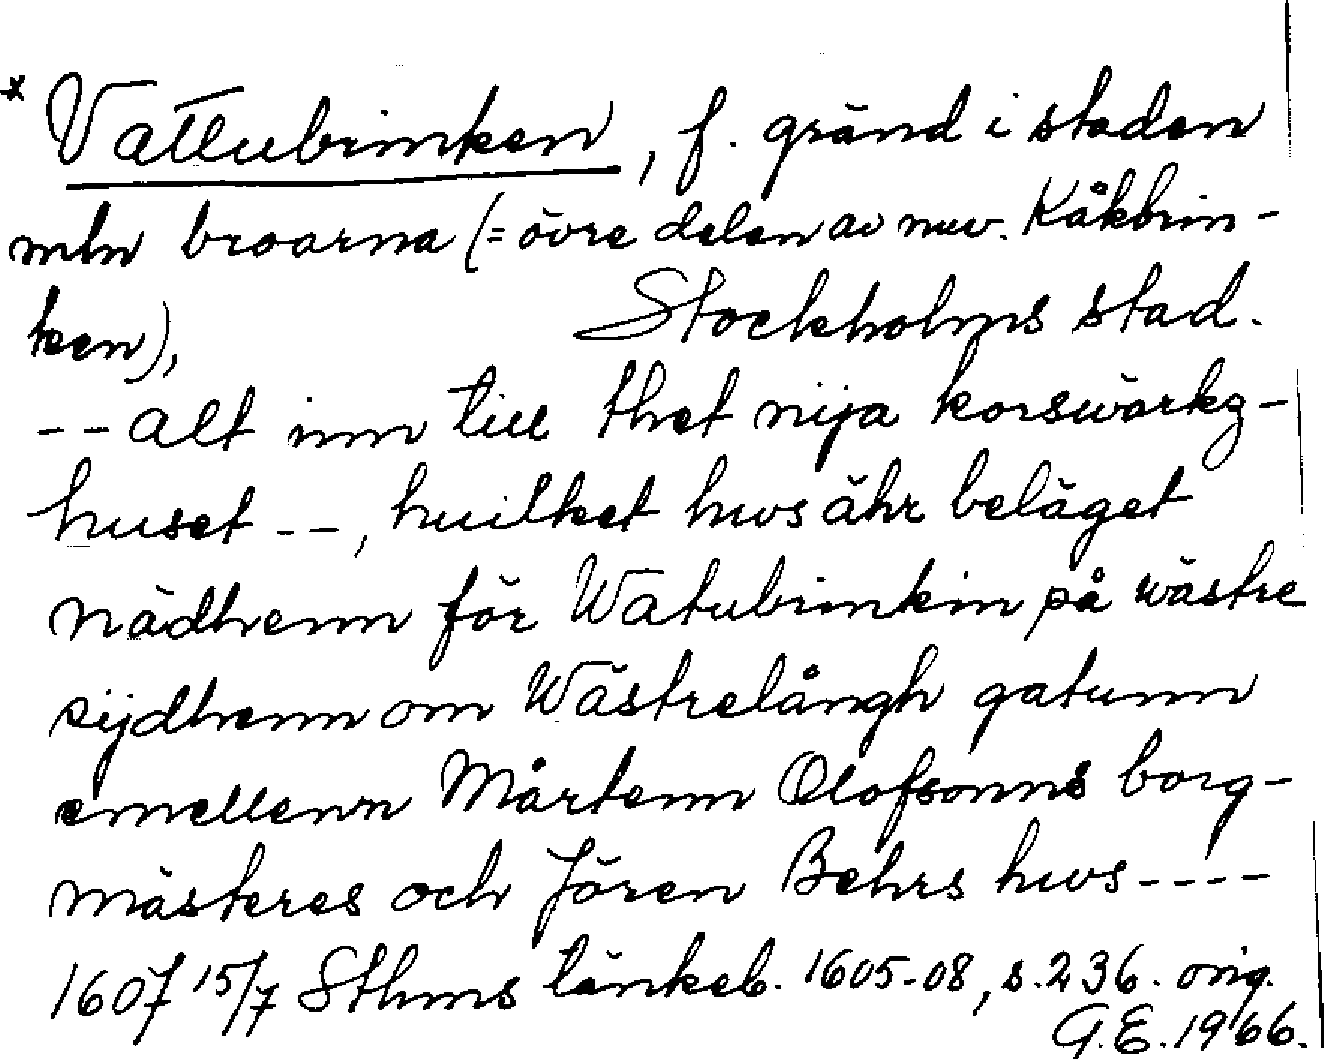 * Vattubrinken, f. gränd i staden
mln broarna (= övre delen av nuv. Kåkbrin-
ken), Stockholms stad.
-- alt inn till thet nija korswärkz-
huset --, huilket hws ähr beläget
nädhenn för Watubrinkin på wästre
sijdhenn om Wästrelångh gatunn
emellenn Mårtenn Olofsonns borg-
mästeres och Jören Behrs hws ----
1607 15/7 Sthms tänkeb. 1605-08, s. 236. orig.
G.E. 1966.